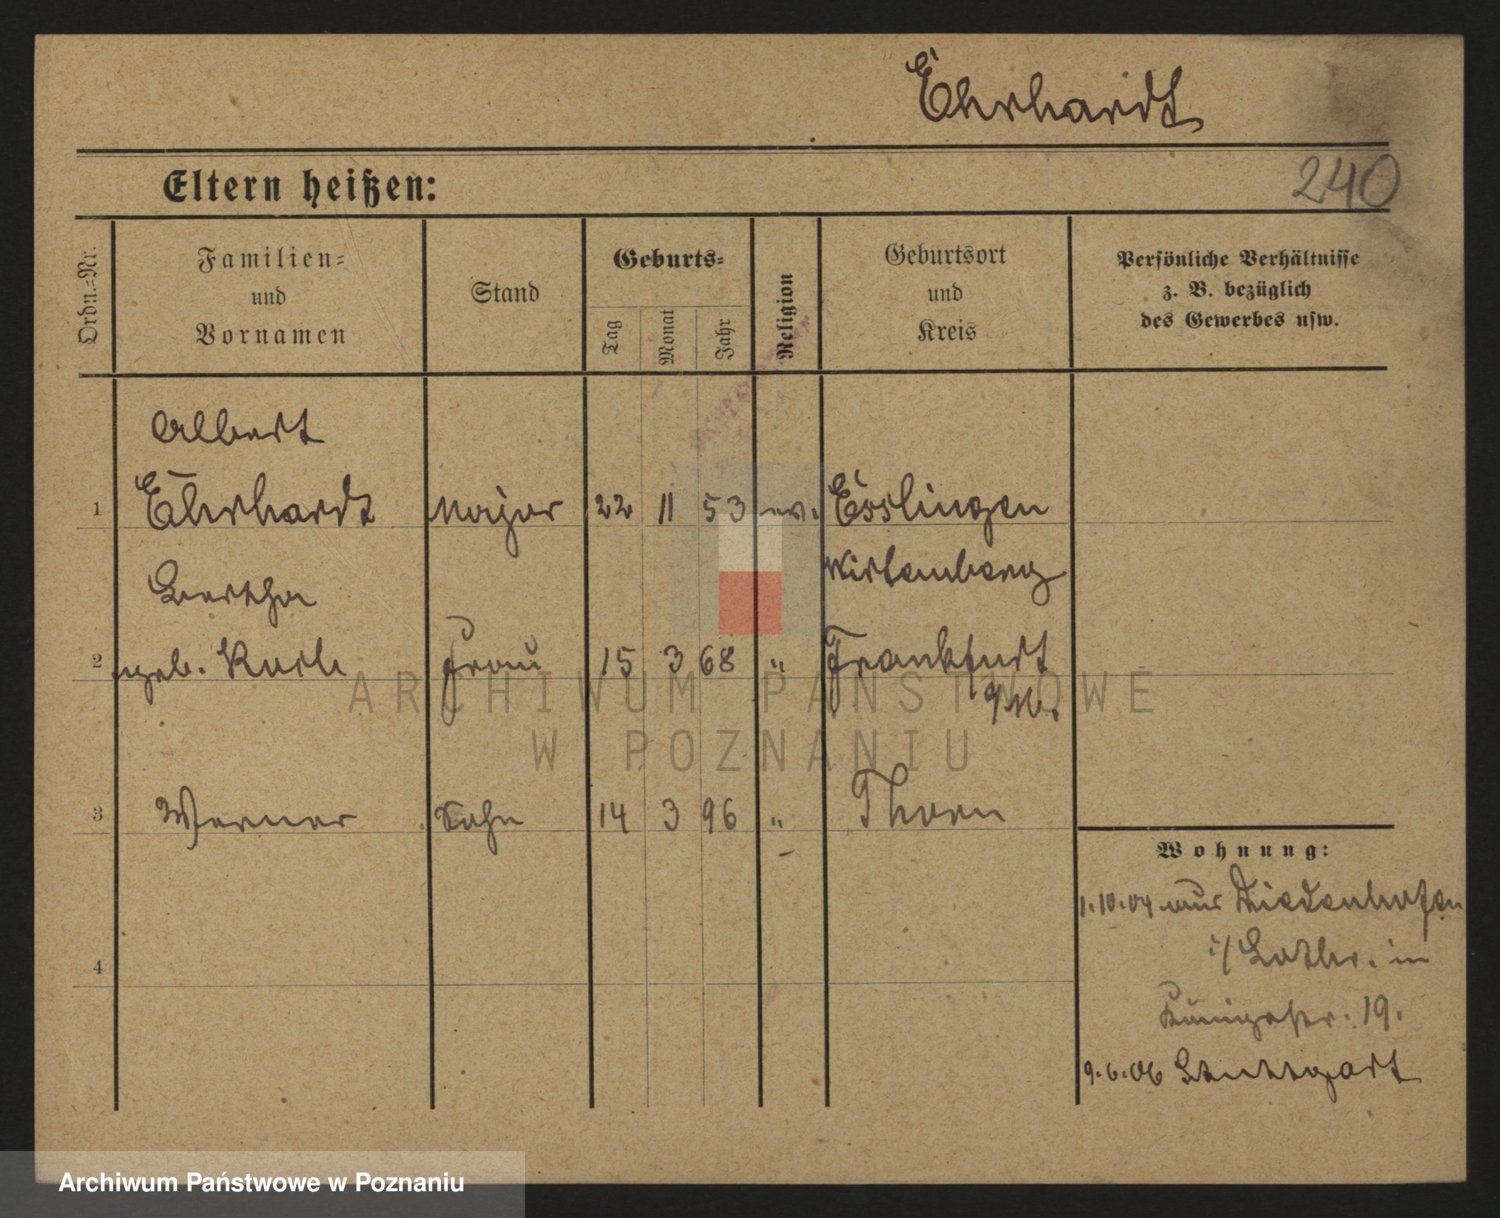 Ehrhardt
240
Eltern heißen:
Ordn.-Nr.
Familien-
und
Vornamen
Stand
Geburts-
Tag
Monat
Jahr
Religion
Geburtsort
und
Kreis
Persönliche Verhältnisse
z. B. bezüglich
des Gewerbes usw.
Albert
1 Ehrhardt Major 22 11 53 ev. Esslingen
Wirtemberg
Bertha
2 geb. Frau 15 3 68 " Frankfurt
a/M.
3 Werner Sohn 14 3 96 " Thorn
4
Wohnung:
1.10.04 aus Diedenhofen
i/ Lothr. in
Königstr. 19.
9.6.06 Stuttgart
ARCHIWUM PAŃSTWOWE
W POZNANIU
Archiwum Państwowe w Poznaniu